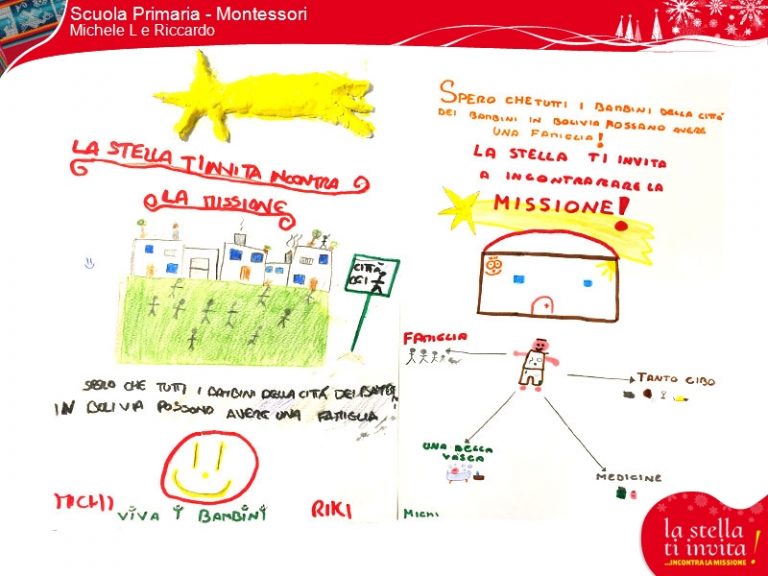 Scuola Primaria - Montessori
Michele L e Riccardo
LA STELLA TI INVITA INCONTRA
LA MISSIONE
CITTÀ
DEI
SPERO CHE TUTTI I BAMBINI DELLA CITTÀ DEI
IN BOLIVIA POSSANO AVERE UNA FAMIGLIA
MICHI
VIVA I BAMBINI
RIKI
SPERO CHE TUTTI I BAMBINI DELLA CITTÀ
DEI BAMBINI IN BOLIVIA POSSANO AVERE
UNA FAMIGLIA!
LA STELLA TI INVITA
A INCONTRARE LA
MISSIONE!
FAMIGLIA
TANTO CIBO
UNA BELLA
VASCA
MEDICINE
MICHI
la stella
ti invita!
...INCONTRA LA MISSIONE